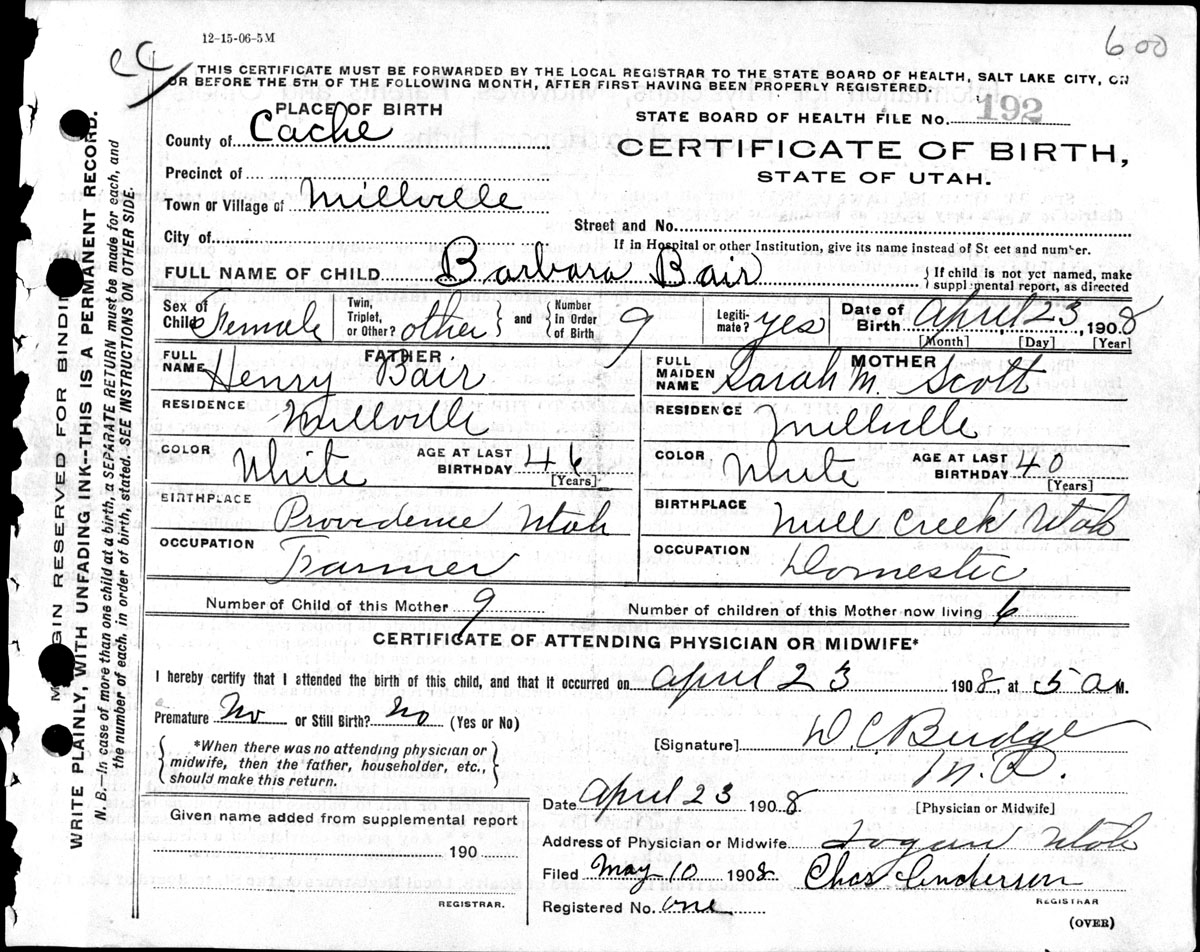 12-15-06-5M
600
THIS CERTIFICATE MUST BE FORWARDED BY THE LOCAL REGISTRAR TO THE STATE BOARD OF HEALTH, SALT LAKE CITY, ON
OR BEFORE THE 5TH OF THE FOLLOWING MONTH, AFTER FIRST HAVING BEEN PROPERLY REGISTERED.
PLACE OF BIRTH
STATE BOARD OF HEALTH FILE NO. 192
County of Cache
CERTIFICATE OF BIRTH,
STATE OF UTAH.
Precinct of
Town or Village of Millville
Street and No.
City of
If in Hospital or other Institution, give its name instead of St eet and number.
FULL NAME OF CHILD Barbara Bair
{ If child is not yet named, make
supplemental report, as directed
Sex of Child Female
Twin, Triplet, or Other? other } and { Number in Order of Birth 9
Legiti-mate? yes
Date of Birth April 23 1908
[Month] [Day] [Year]
FATHER.
FULL NAME Henry Bair
MOTHER
FULL MAIDEN NAME Sarah M. Scott
RESIDENCE Millville
RESIDENCE Millville
COLOR White AGE AT LAST BIRTHDAY 46 [Years]
COLOR White AGE AT LAST BIRTHDAY 40 (Years)
BIRTHPLACE Providence Utah
BIRTHPLACE Mill Creek Utah
OCCUPATION Farmer
OCCUPATION Domestic
Number of Child of this Mother 9
Number of children of this Mother now living 6
CERTIFICATE OF ATTENDING PHYSICIAN OR MIDWIFE*
I hereby certify that I attended the birth of this child, and that it occurred on April 23 1908, at 5 a M.
Premature No or Still Birth? No (Yes or No)
{ *When there was no attending physician or
midwife, then the father, householder, etc.,
should make this return. }
[Signature] D. C. Budge
M. D.
Date April 23 1908
[Physician or Midwife]
Given name added from supplemental report
190
REGISTRAR.
Address of Physician or Midwife Logan Utah
Filed May 10 1908 Chas Anderson
REGISTRAR
Registered No. one
(OVER)
MARGIN RESERVED FOR BINDING
WRITE PLAINLY, WITH UNFADING INK--THIS IS A PERMANENT RECORD.
N. B.—In case of more than one child at a birth, a SEPARATE RETURN must be made for each, and
the number of each, in order of birth, stated. SEE INSTRUCTIONS ON OTHER SIDE.